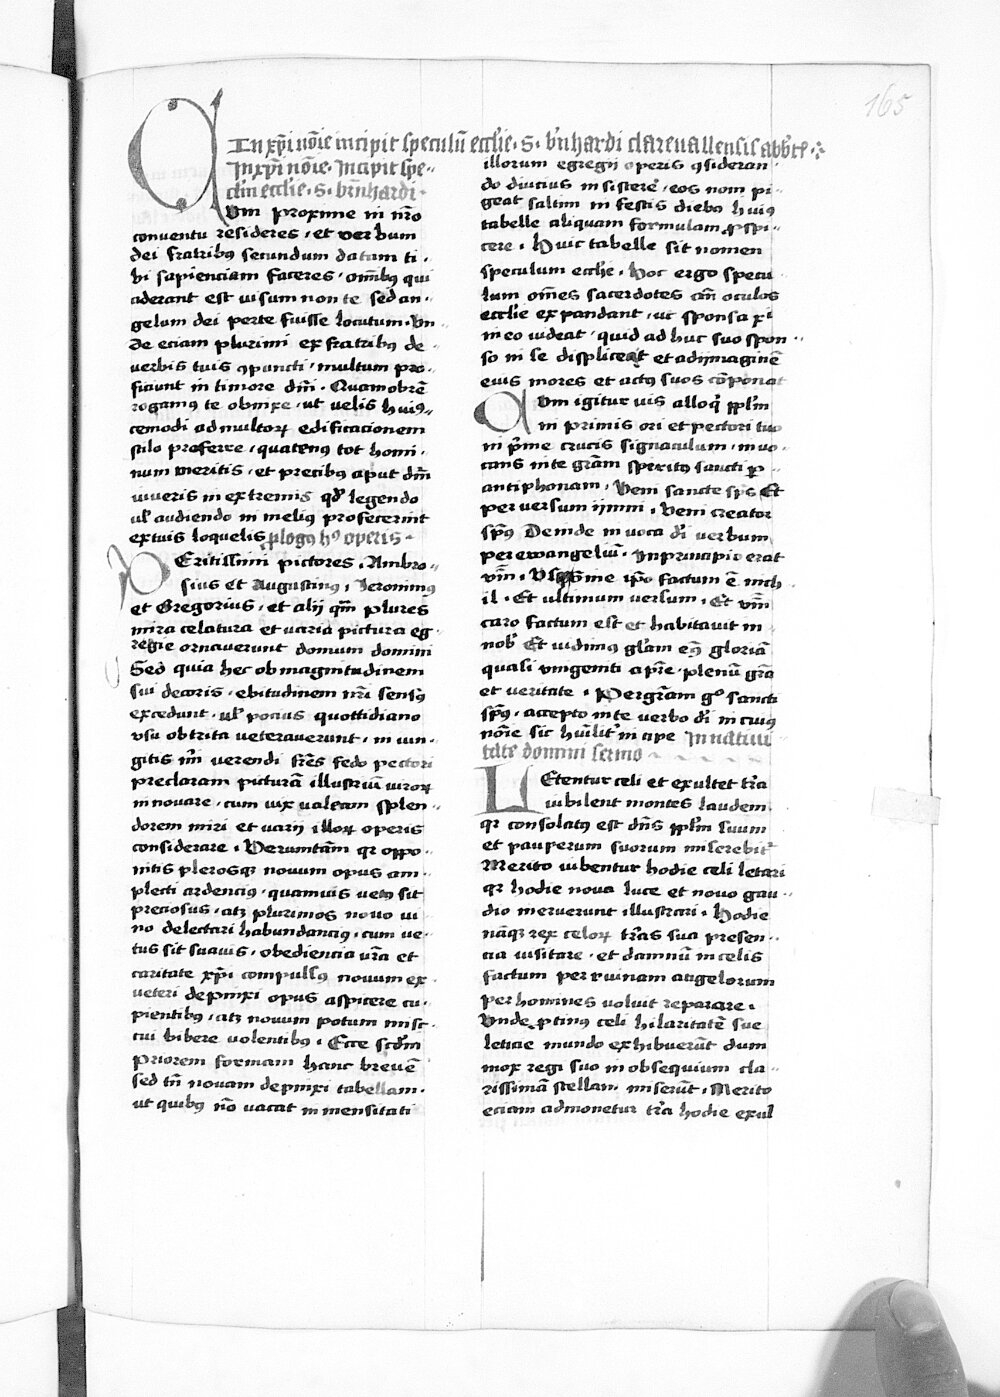 165
In xp̄i nōie incipit speculū eccl̄ie · S · b̄nhardi clareuallensis abb̄te
In xp̄i nōie · Incipit spe-
clm̄ eccl̄ie · S · b̄nhardi ·
Cvm proxime in nr̄o
conuentu resideres · et verbum
dei fratribus secundum datam ti-
bi sapienciam faceres · om̄ibus qui
aderant est uisum non te sed an-
gelum dei per te fuisse locutum · Vn
de eciam plurimi ex fratribus de-
verbis tuis ꝯpuncti · multum pro-
ficiunt in timore dn̄i · Quamobrē
rogamus te obnixe · ut velis huius-
cemodi ad multoꝝ edificationem
stilo proferre · quatenus tot homi-
num meritis · et precibus aput dn̄m
uiueris in extremis qd̄ legendo
ul' audiendo in melius profecerint
ex tuis loquelis ꝓlogus h' operis ·
Peritissimi pictores · Ambro-
sius et Augustinus · Jeronimus
et Gregorius · et alij qm̄ plures
mira celatura et uaria pictura eg-
regie ornauerunt domum domini
Sed quia hec ob magnitudinem
sui decoris · ebitudinem nr̄i sensus
excedunt · ul' pocius quottidiano
vsu obtrita veterauerunt · in iun-
gitis m̄ uerendi fr̄es fedo pectori
preclaram picturā illustriū uiroꝝ
innouare · cum uix ualeam splen-
dorem miri et uarij illoꝝ operis
considerare · Verumtn̄ qr oppo-
nitis plerosqꝫ nouum opus am-
plecti ardencius · quamuis vetus sit
preciosus · atꝫ plurimos nouo ui
no delectari habundancius · cum ve-
tus sit suauis · obediencia ur̄a et
caritate xp̄i compulsus nouum ex
veteri depinxi opus aspicere cu-
pientibus · atꝫ nouum potum misc-
tui bibere volentibus · Ecce scdm̄
priorem formam hanc breuē
sed tn̄ nouam depinxi tabellam ·
ut quibus nō vacat in mensitati
illorum egregij operis ꝯsideran-
do diutius insistere · eos non pi-
geat saltim in festis diebus huius
tabelle aliquam formulam ꝓspi-
cere · Huic tabelle sit nomen
speculum eccl̄ie · Hoc ergo specu
lum om̄es sacerdotes an̄ oculos
eccl̄ie expandant · ut sponsa xp̄i
in eo uideat · quid ad huc suo spon-
so in se displiceat et ad ijmaginē
euis mores et actus suos cōponat
Cvm igitur vis alloqi ppl̄m
in primis ori et pectori tuo
in p̄me crucis signaculum · inuo
cans in te gr̄am spiritus sancti p
antiphonam · Veni sancte sp̄s Et
per versum ijmni · Veni creator
sp̄us Deinde in uoca di uerbum
per ewangeliū · In principio erat
vm̄ · Vsqꝫ sine ip̄o factum ē nich
il · Et ultimum versum · Et vm̄
caro factum est et habitauit in
nob' Et uidimus gl'am eius gloriā
quasi vnigeniti a pr̄e · plenū gr̄a
et veritate · Per gr̄am g° sancti
sp̄us · accepto in te verbo di in cuius
nōie sic hu'ilit' incipe In natiui
tate domini sermo
Letentur celi et exultet tr̄a
iubilent montes laudem
qr consolatus est dn̄s ppl̄m suum
et pauperum suorum miserebit'
Merito iubentur hodie celi letari
qr hodie noua luce et nouo gau-
dio meruerunt illustrari · Hodie
nāqꝫ rex celoꝝ tr̄as sua presen-
cia uisitare · et damnū in celis
factum per ruinam angelorum
per homines voluit reparare ·
Vnde ꝓtinus celi hilaritatē sue
leticie mundo exhibuerūt dum
mox regi suo in obsequium cla-
rissimā stellam miserūt · Merito
eciam admonetur tr̄a hodie exul